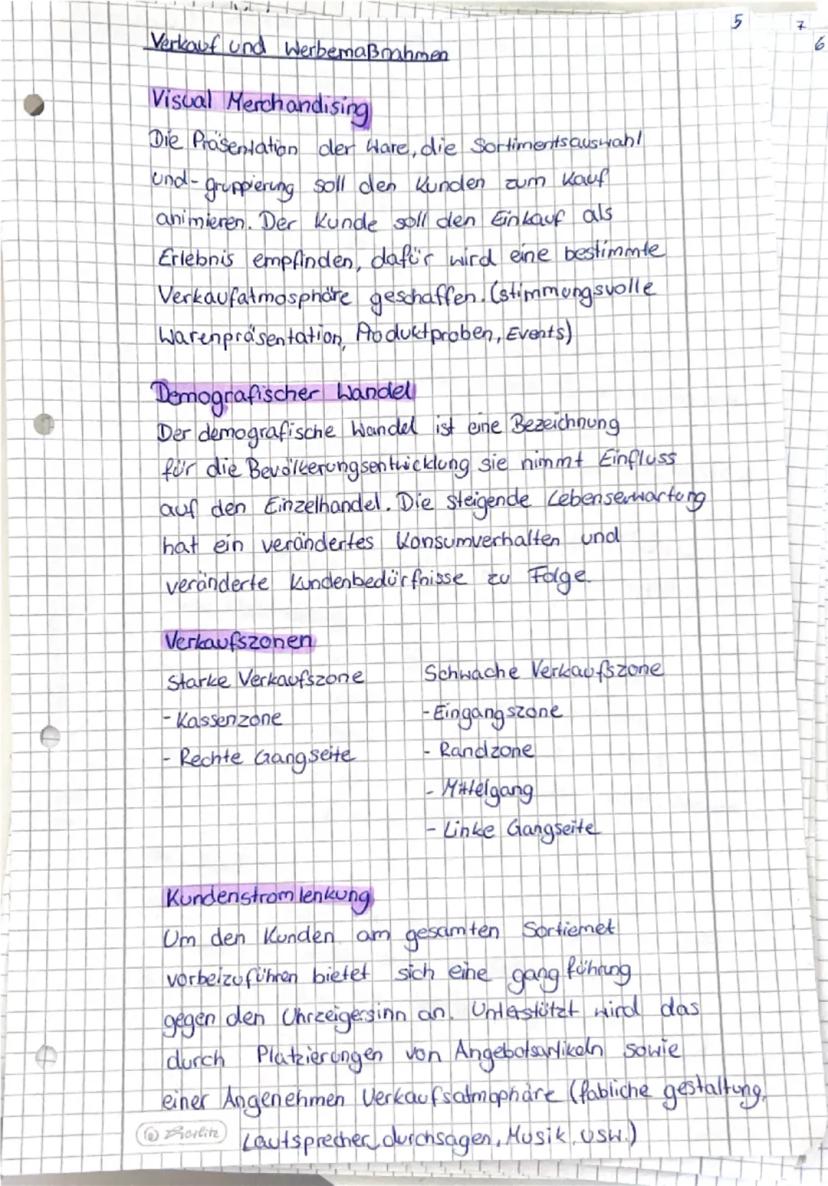 5
7
6
Verkauf und Werbemaßnahmen
Visual Merchandising
Die Präsentation der Ware, die Sortimentsauswahl
und-gruppierung soll den Kunden zum Kauf
animieren. Der Kunde soll den Einkauf als
Erlebnis empfinden, dafür wird eine bestimmte
Verkaufatmosphäre geschaffen. (stimmungsvolle
Warenpräsentation, Produktproben, Events)
Demografischer Wandel
Der demografische Wandel ist eine Bezeichnung
für die Bevölkerungsentwicklung sie nimmt Einfluss
auf den Einzelhandel. Die steigende Lebenserwartung
hat ein verändertes Konsumverhalten und
veränderte Kundenbedürfnisse zu Folge.
Verkaufszonen
Starke Verkaufszone
- Kassenzone
- Rechte Gangseite
Schwache Verkaufszone
- Eingangszone
- Randzone
- Mittelgang
- Linke Gangseite
Kundenstromlenkung
Um den Kunden am gesamten Sortiemet
vorbeizuführen bietet sich eine gangführung
gegen den Uhrzeigersinn an. Unterstützt wird das
durch Platzierungen von Angebotsartikeln sowie
einer Angenehmen Verkaufsatmophäre (fabliche gestaltung,
Lautsprecher durchsagen, Musik, usw.)